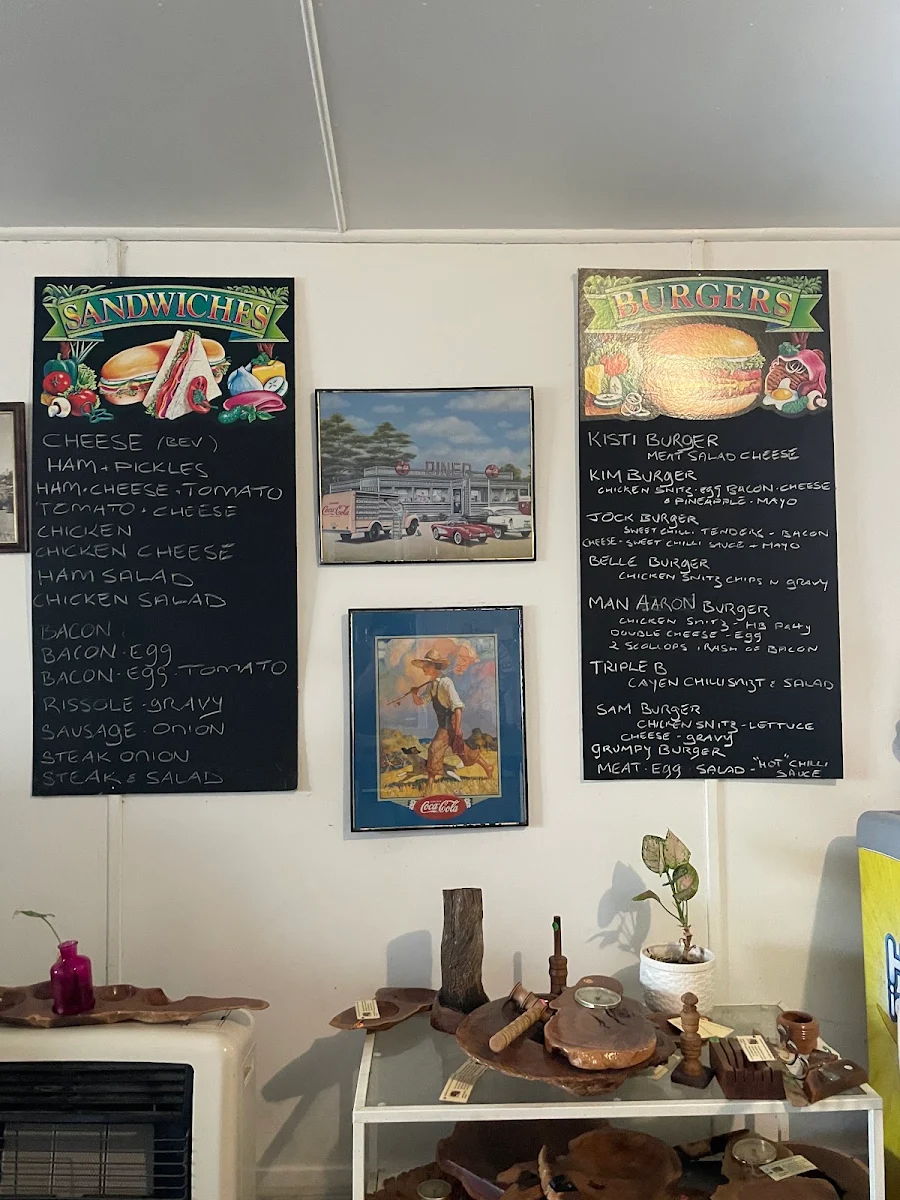 SANDWICHES
CHEESE (BEV)
HAM + PICKLES
HAM · CHEESE · TOMATO
TOMATO + CHEESE
CHICKEN
CHICKEN CHEESE
HAM SALAD
CHICKEN SALAD
BACON
BACON · Egg
BACON · Egg · TOMATO
RISSOLE · gRAVY
SAUSAGE · ONION
STEAK ONION
STEAK & SALAD
DINER
Coca-Cola
Coca-Cola
BURGERS
KISTI BURGER
MEAT SALAD CHEESE
KIM BURGER
CHICKEN SNITZ · Egg BACON · CHEESE
& PINEAPPLE · MAYO
JOCK BURGER
SWEET CHILLI TENDERS - BACON
CHEESE - SWEET CHILLI SAUCE + MAYO
BELLE BURGER
CHICKEN SNITZ CHIPS N gRAVY
MAN AARON BURgER
CHICKEN SNITZ · HB PATTY
DOUBLE CHEESE · Egg
2 SCOLLOPS 1 RASH OF BACON
TRIPLE B
CAYEN CHILLI SNIZT & SALAD
SAM BURGER
CHICKEN SNITZ - LETTUCE
CHEESE - gRAVY
gRUMPY BURGER
MEAT · Egg SALAD - "HOT" CHILLI
SAUCE